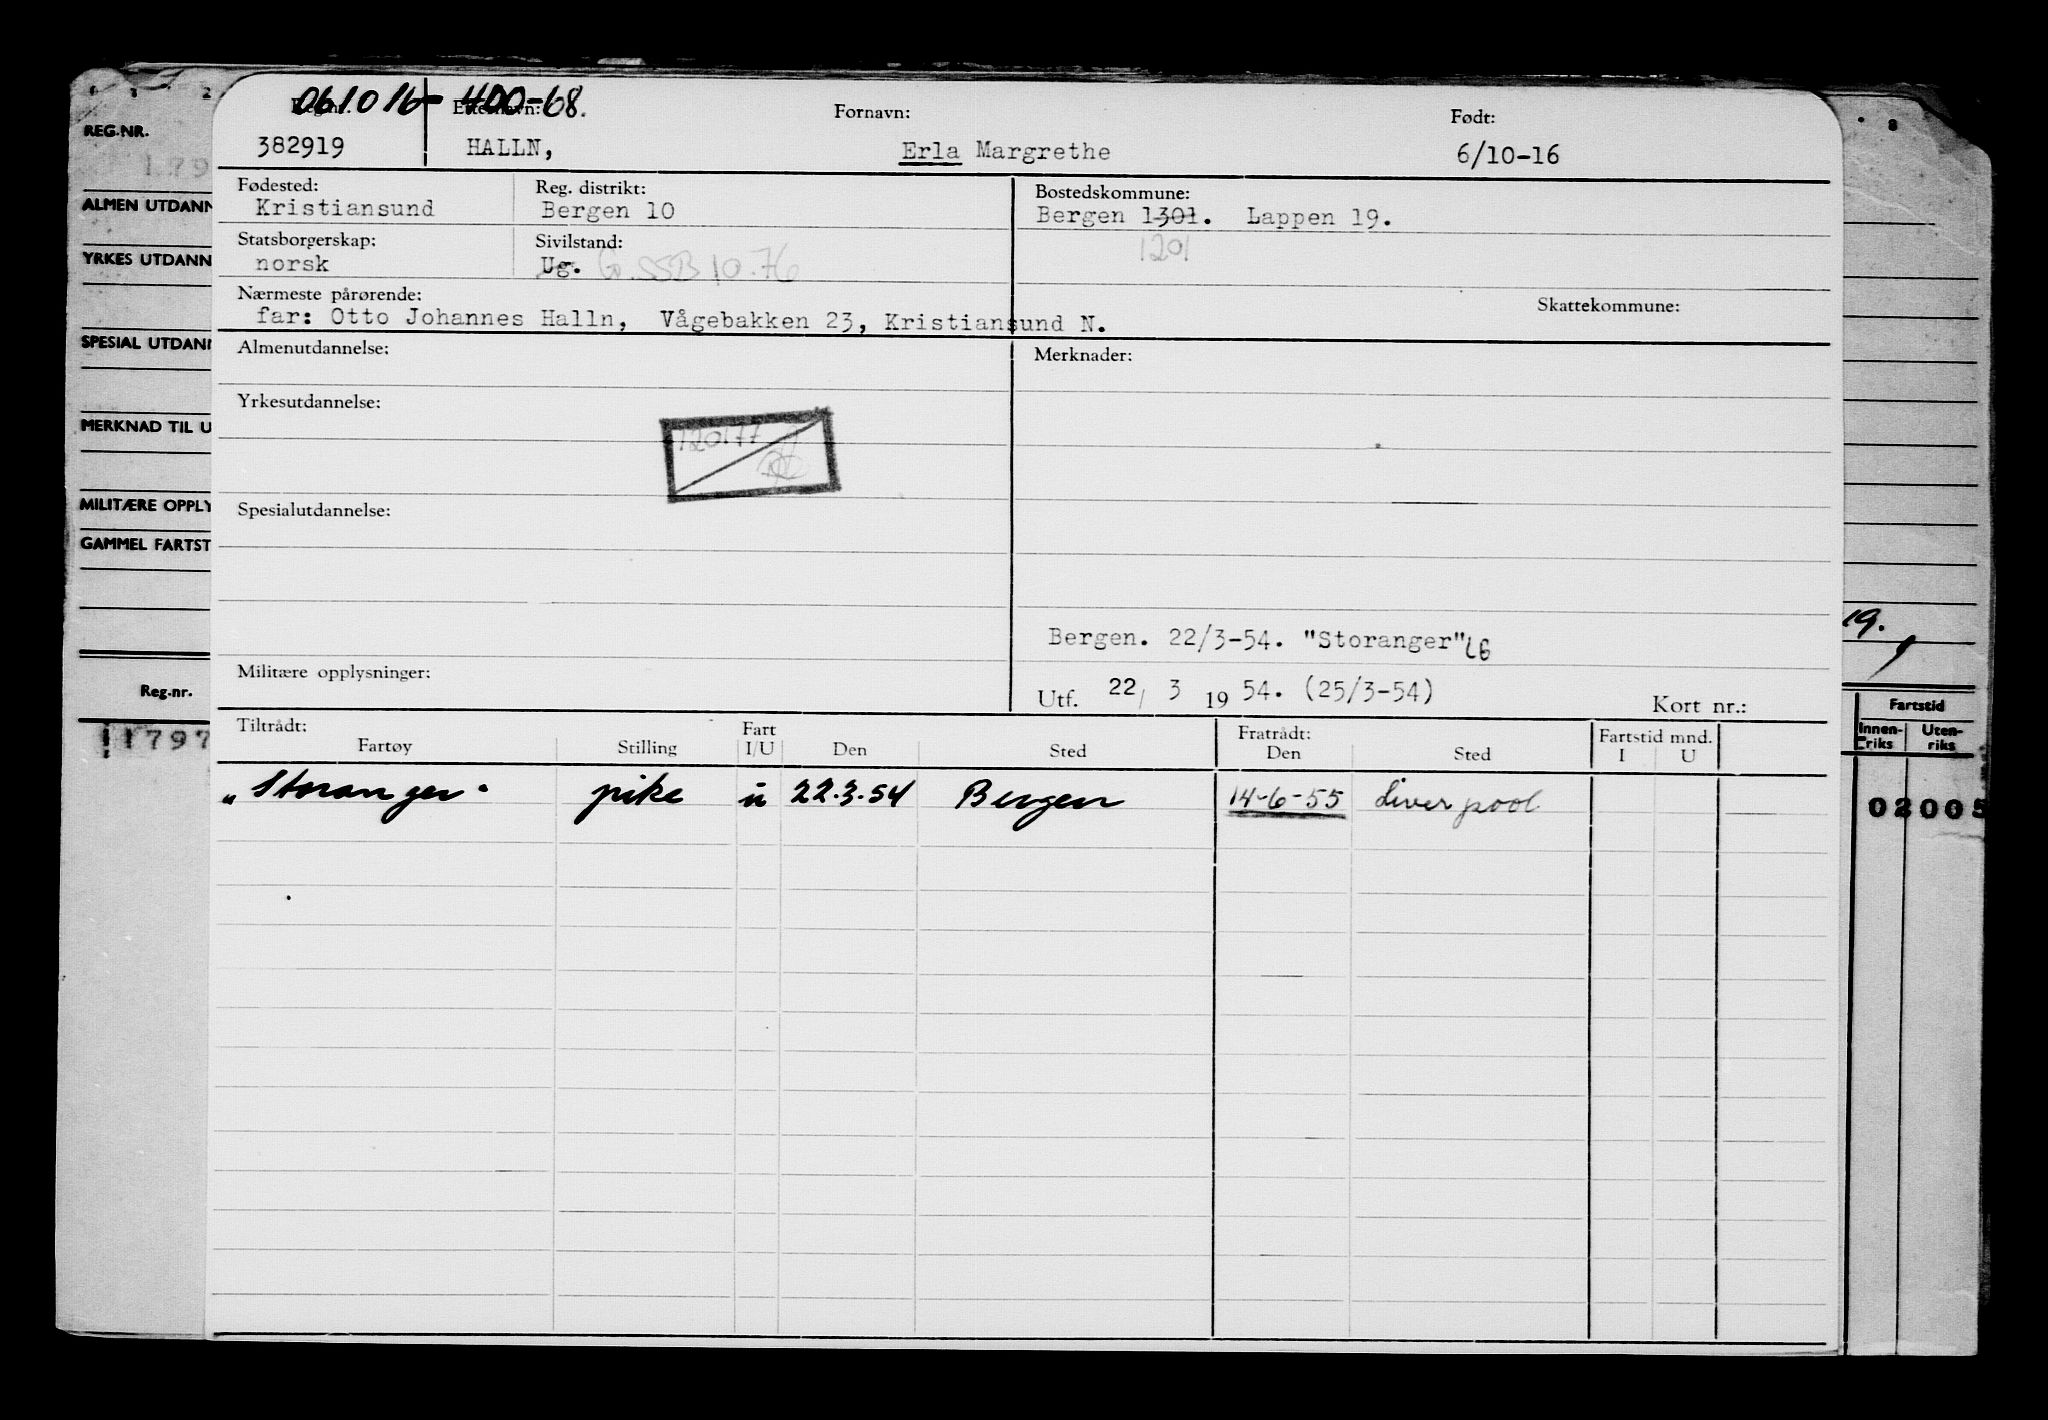 061016- 400-68.
Reg.nr.: Etternavn: Fornavn: Født:
382919 HALLN, Erla Margrethe 6/10-16
Fødested: Reg. distrikt: Bostedskommune:
Kristiansund Bergen 10 Bergen 1301. Lappen 19.
Statsborgerskap: Sivilstand: 1201
norsk Ug. G. SSB 10.76
Nærmeste pårørende: Skattekommune:
far: Otto Johannes Halln, Vågebakken 23, Kristiansund N.
Almenutdannelse: Merknader:
Yrkesutdannelse:
120177
Spesialutdannelse:
Bergen. 22/3-54. "Storanger"
Militære opplysninger:
Utf. 22/ 3 19 54. (25/3-54) Kort nr.:
Tiltrådt: Fart Fratrådt: Fartstid mnd.
Fartøy Stilling I/U Den Sted Den Sted I U
„Storanger" pike u 22.3.54 Bergen 14-6-55 Liverpool
REG.NR.
179
ALMEN UTDANN
YRKES UTDANN
SPESIAL UTDANN
MERKNAD TIL U
MILITÆRE OPPLY
GAMMEL FARTST
Reg.nr.
1797
2
8
19.
Fartstid
Innen- Uten-
riks riks
02005